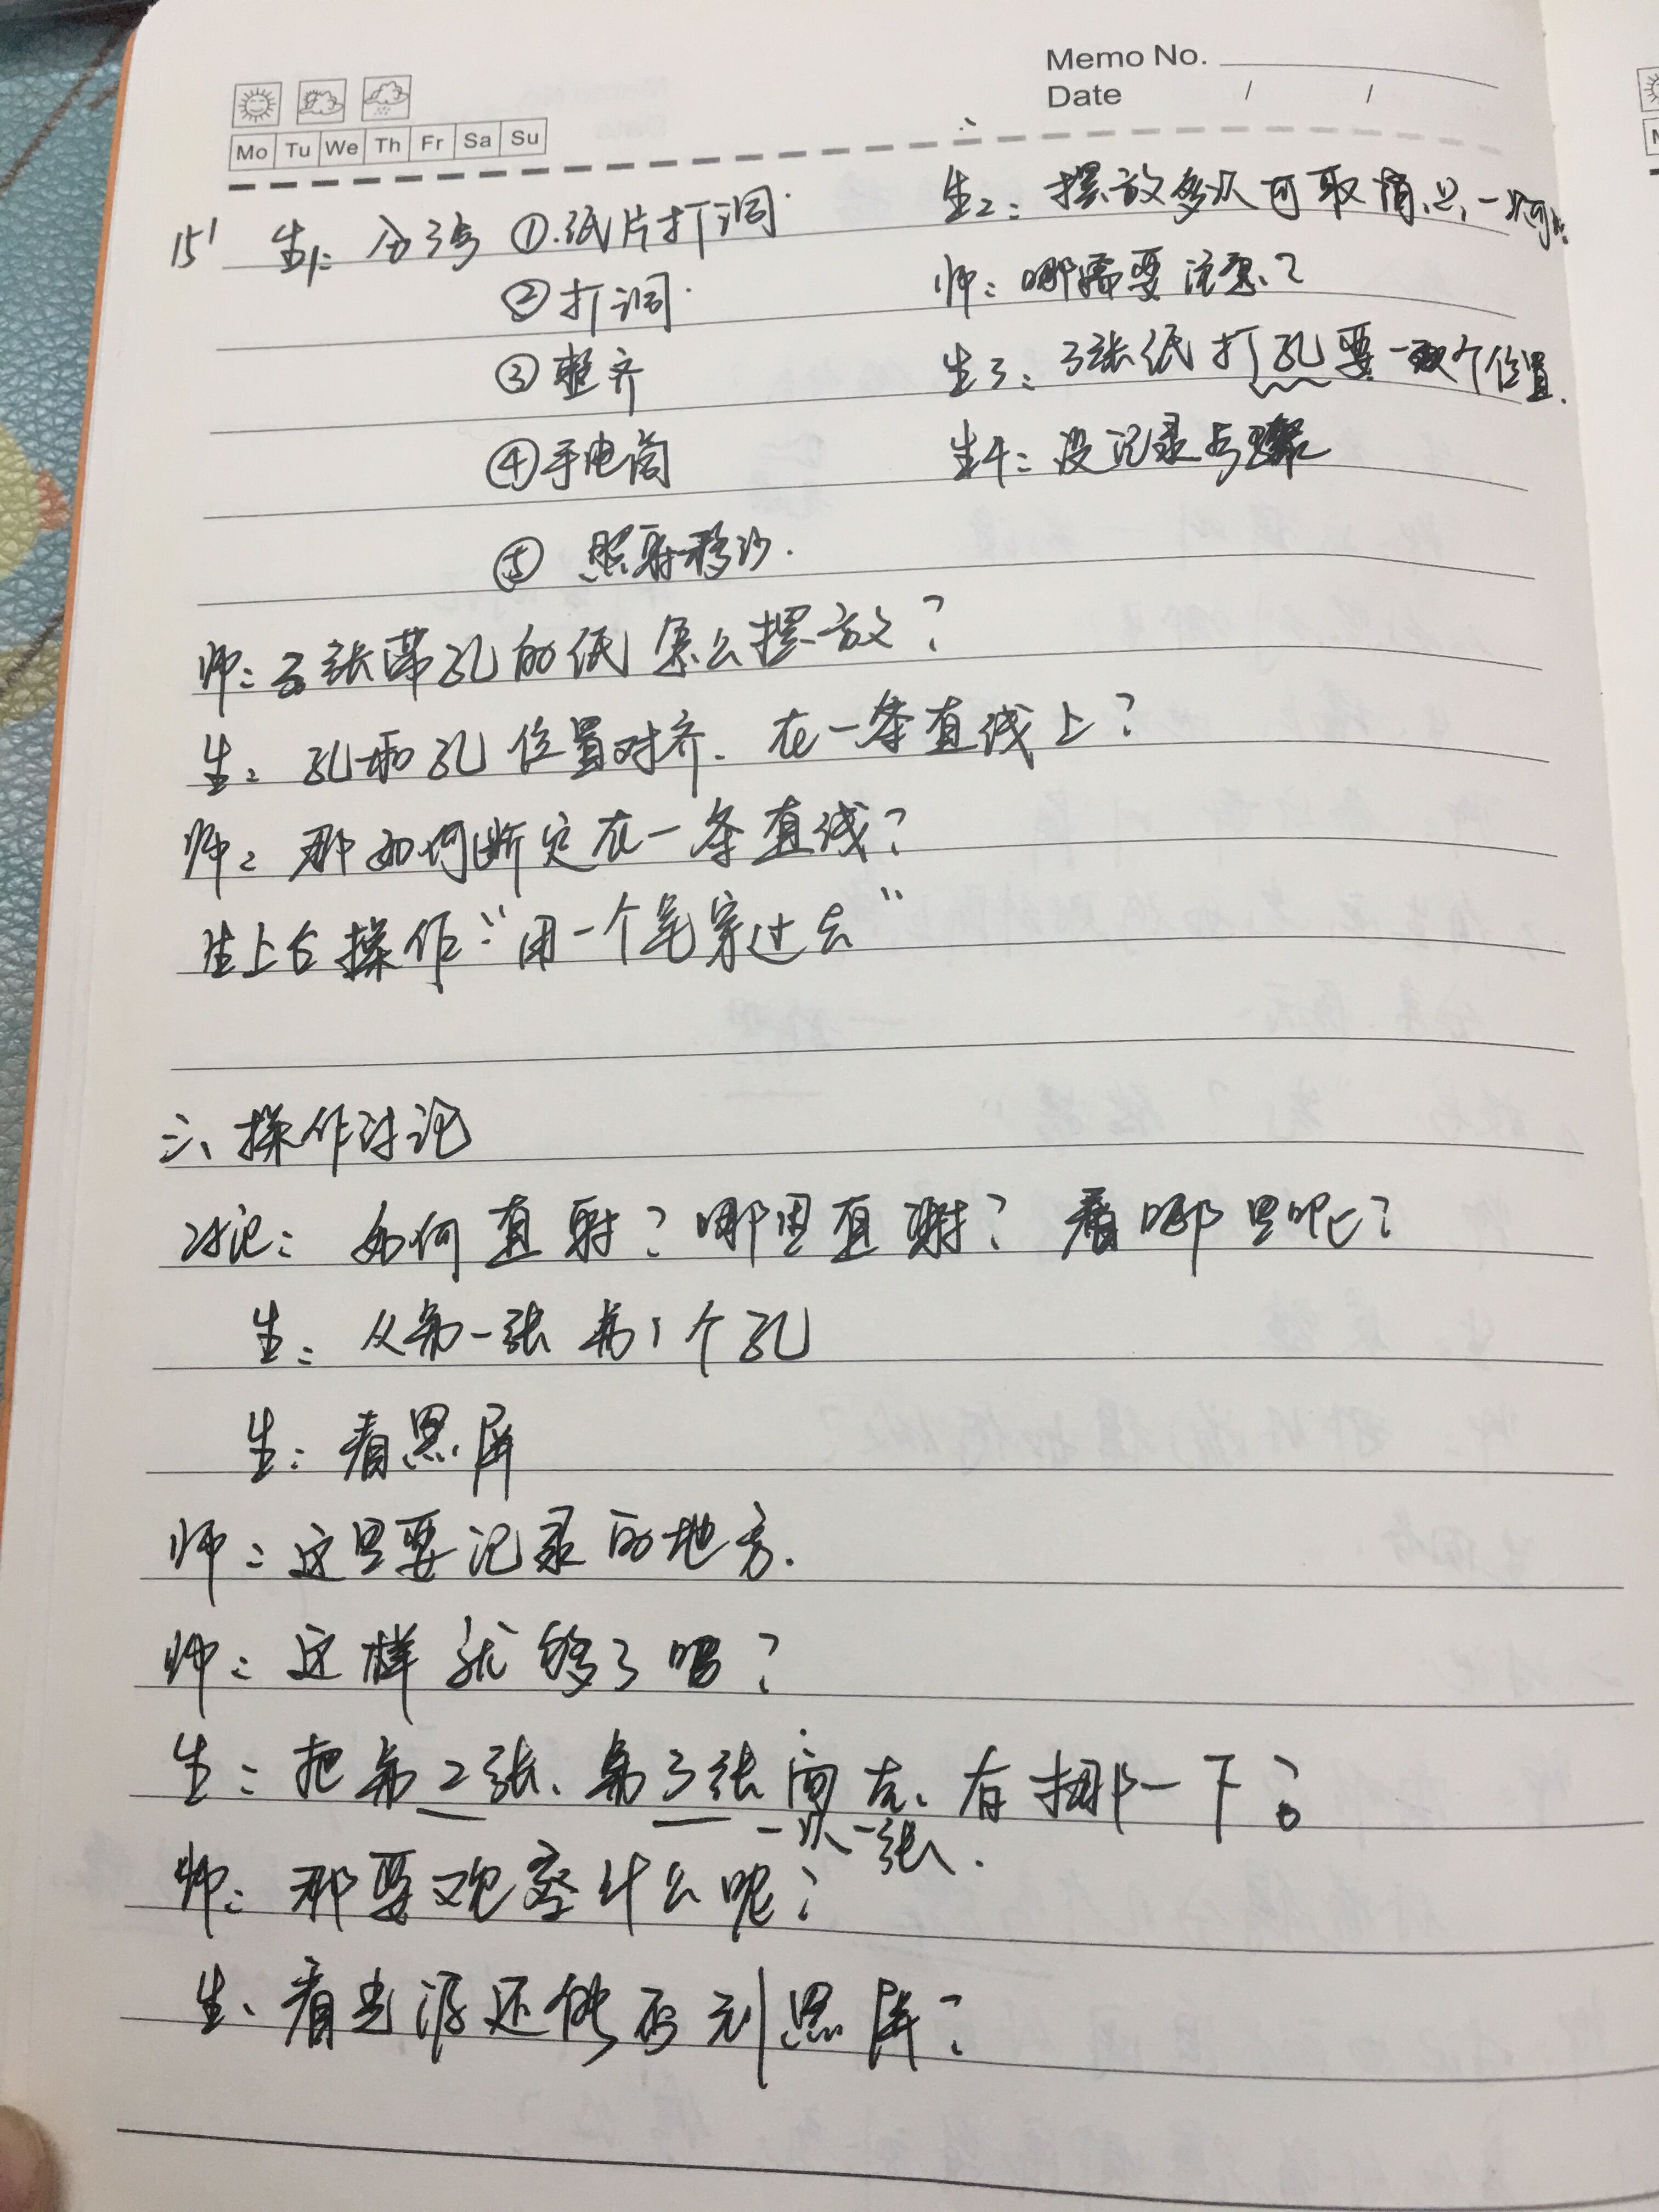 Memo No.
Date / /
Mo Tu We Th Fr Sa Su
15' 生1: 分活 ①.纸片打洞
②打洞
③整齐
④手电筒
⑤ 照射移沙.
生2: 摆放多次可取 一次
师: 哪需要注意?
生3: 3张纸打孔要一个位置.
生4: 没记录步骤
师: 三张带孔的纸怎么摆放?
生: 孔和孔位置对齐. 在一条直线上?
师: 那如何断定在一条直线?
生上台操作:“用一个笔穿过去”
三、操作讨论
讨论: 如何直射? 哪里直射? 看哪里呢?
生: 从第一张第1个孔
生: 看黑屏
师: 这是要记录的地方.
师: 这样就够了吗?
生: 把第2张、第3张向左、右挪一下?
一次一张.
师: 那要观察什么呢?
生: 看光源还能否到黑屏?